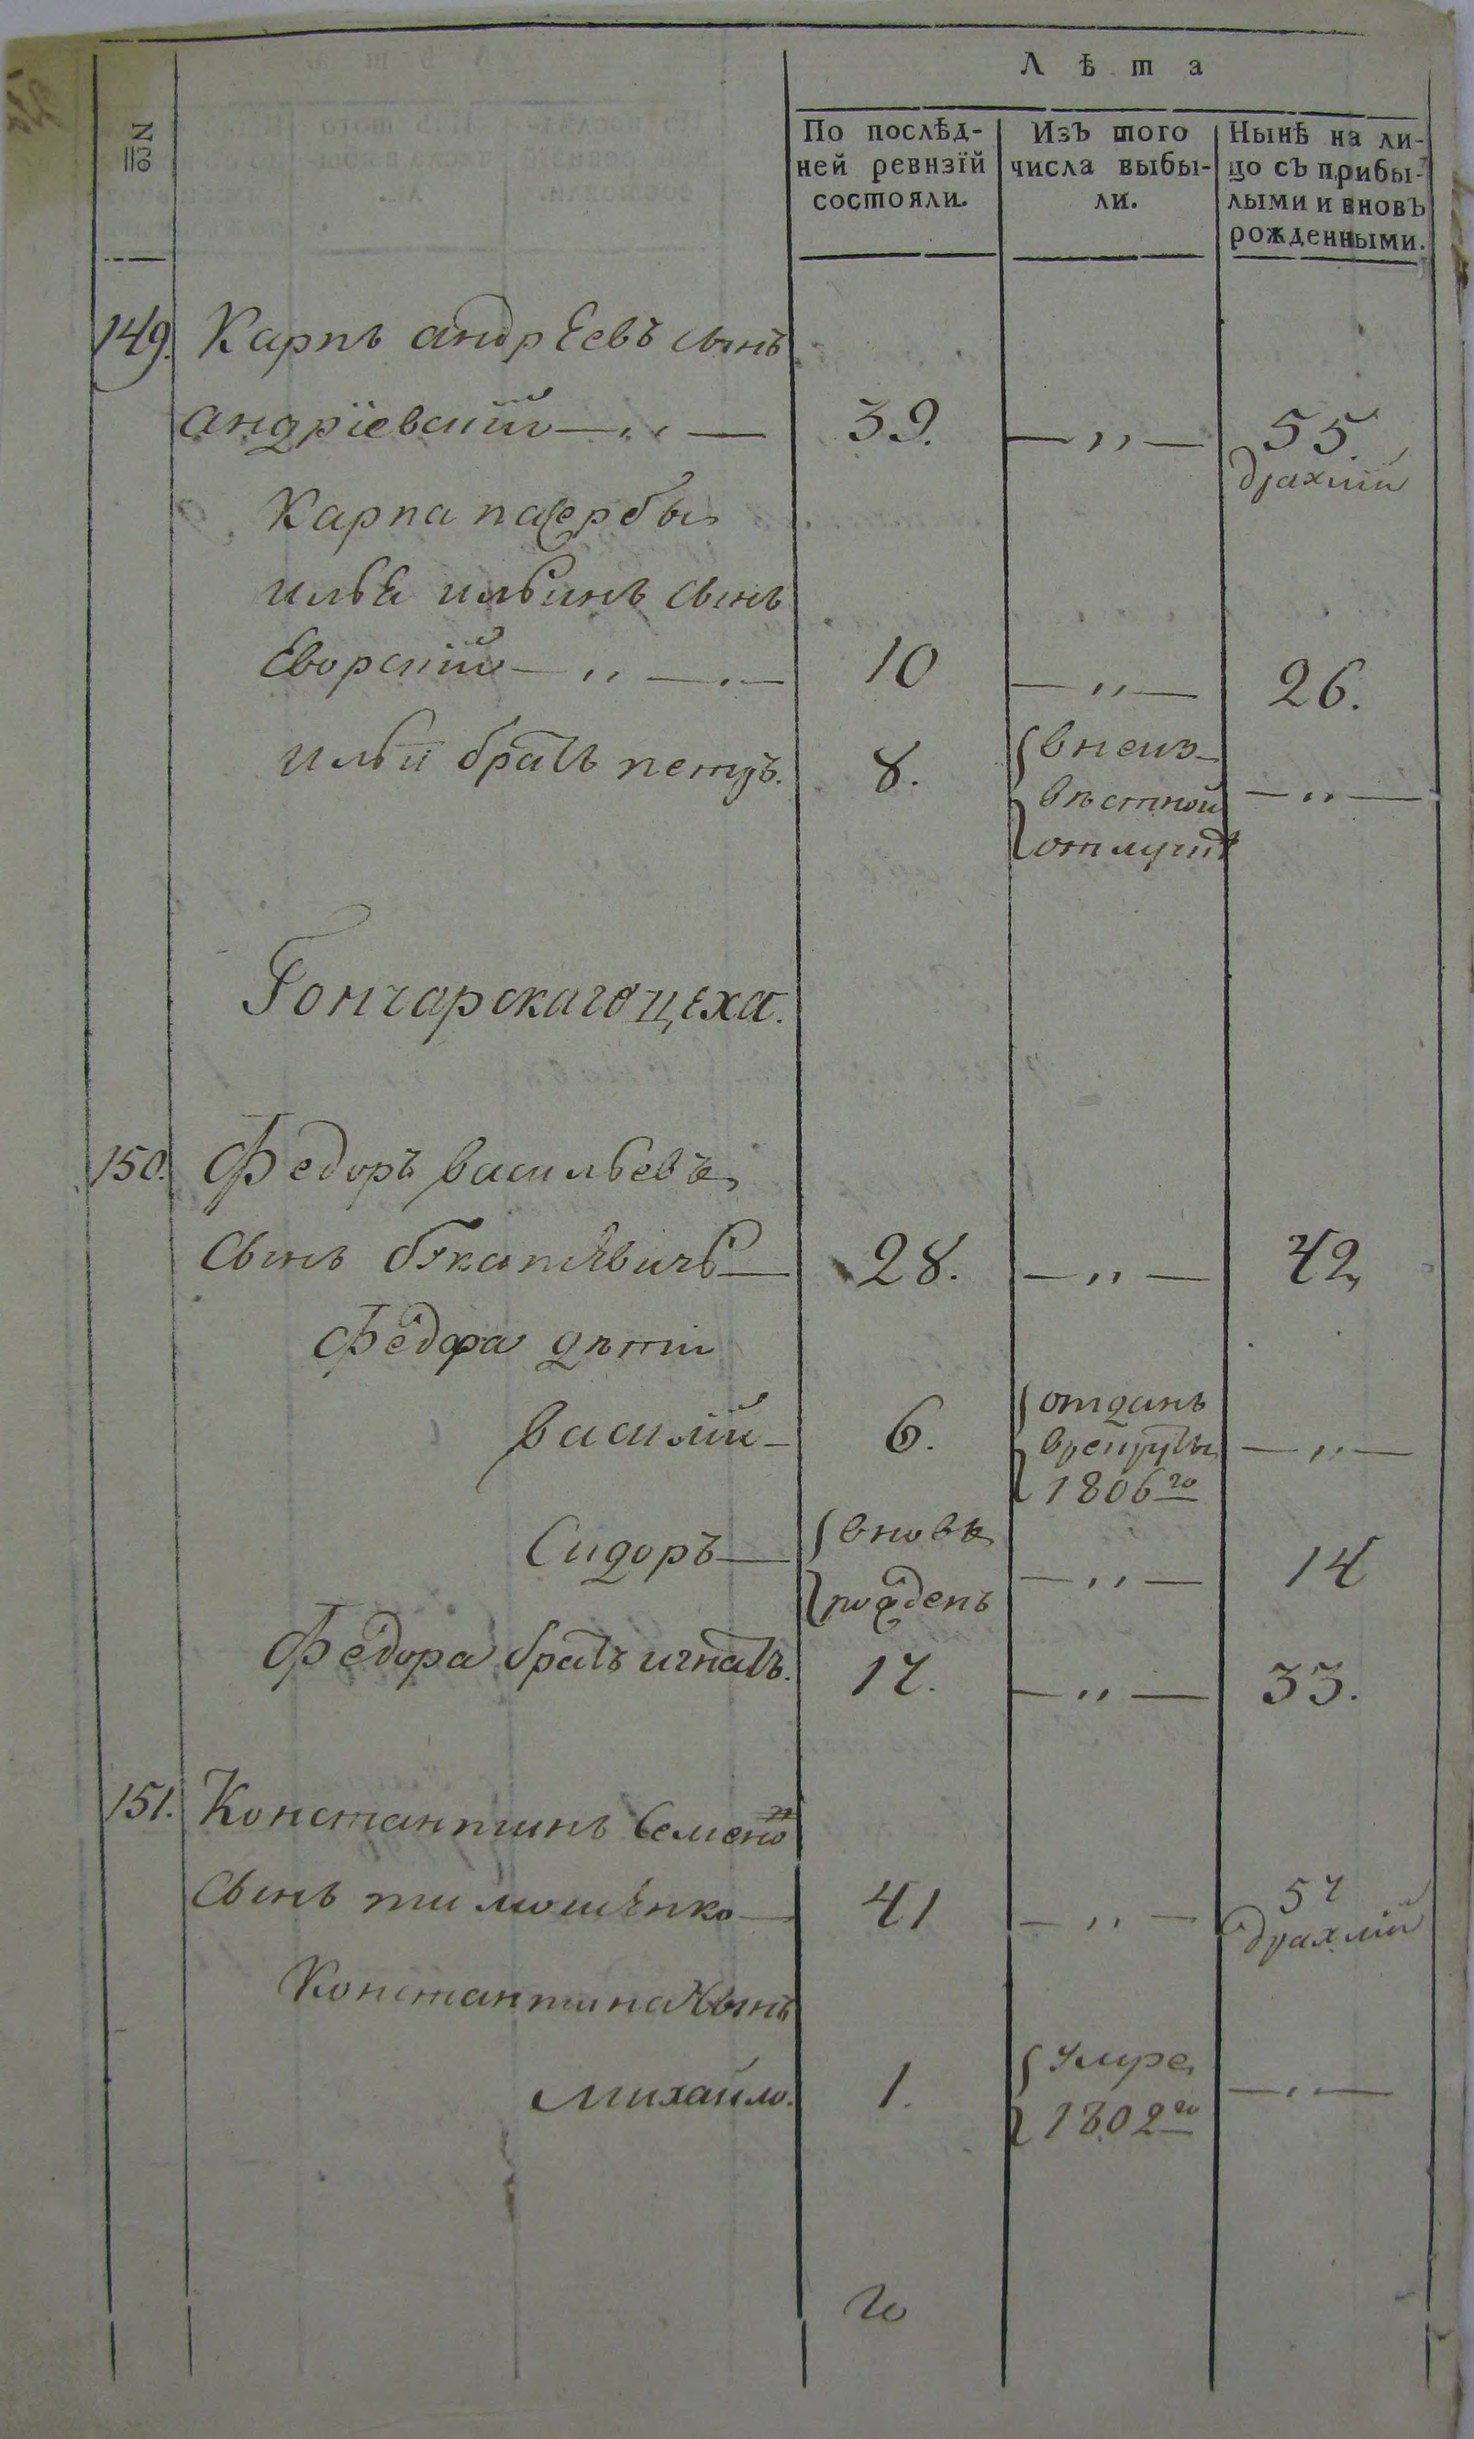 Лѣта
№
По послѣд-
ней ревизїй
состояли.
Изъ того
числа выбы-
ли.
Нынѣ на ли-
цо съ прибы-
лыми и вновь
рожденными.
149. Карпъ андрѣевъ сынъ
андрїевский — „ — 39. — „ — 55.
драхлїй
Карпа пасербы
илья ильинъ сынъ
Еворский — „ — 10 — „ — 26.
ильи братъ петръ. 8. внеиз-
вѣстной — „ —
отлучкѣ
Гончарскаго цеха.
150. Федоръ васильевъ
сынъ — 28. — „ — 42
Федора дѣти
василий — 6. отданъ
врекруты — „ —
1806го
Сидоръ — вновь
рожденъ — „ — 14
Федора братъ игнатъ. 17. — „ — 33.
151. Константинъ Семено
сынъ тимошенко — 41 — „ — 57
драхлїй
Константина сынъ
михайло. 1. умре
1802го — „ —